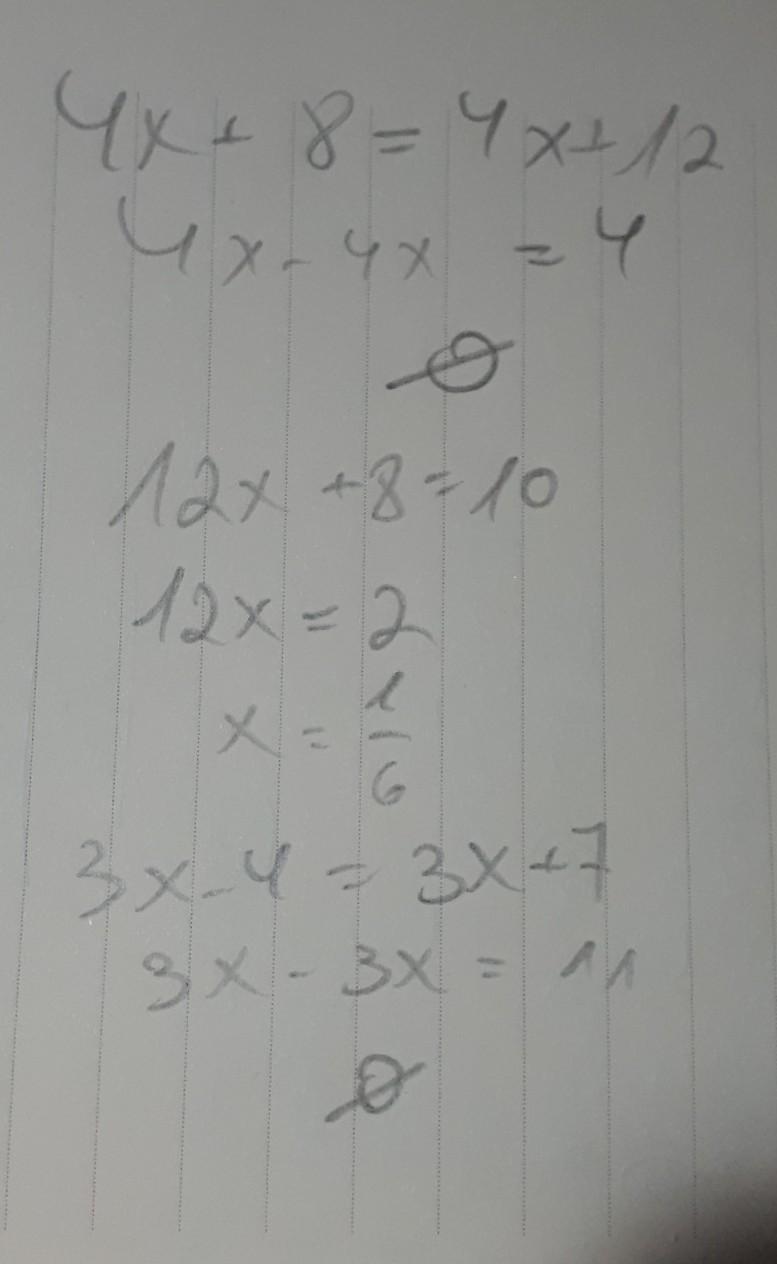 4x + 8 = 4x + 12
4x - 4x = 4
∅
12x + 8 = 10
12x = 2
x = 1/6
3x - 4 = 3x + 7
3x - 3x = 11
∅